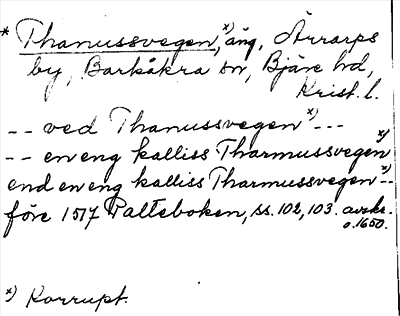 * Thanussvegen,ˣ⁾ äng, Ärrarps
by, Barkåkra sn, Bjäre hd,
Krist. l.
-- ved Thanussvegenˣ⁾ ---
-- en eng kalliss Tharmussvegenˣ⁾
end en eng kalliss Tharmussvegenˣ⁾--
före 1517 Palteboken, ss. 102, 103. avskr.
o. 1650.
ˣ⁾ Korrupt.